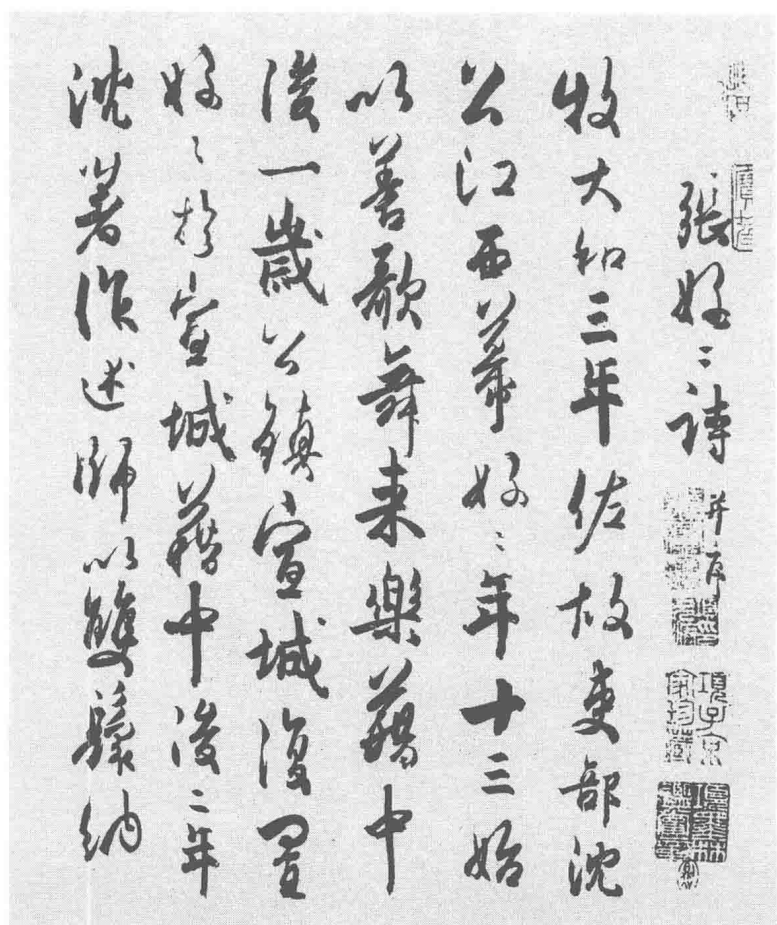 張好〻詩 并序
牧大和三年佐故吏部沈
公江西幕好〻年十三始
以善歌舞来樂籍中
後一歲公鎮宣城復置
好〻於宣城籍中後二年
沈著作述師以雙鬟納
項子京家珍藏